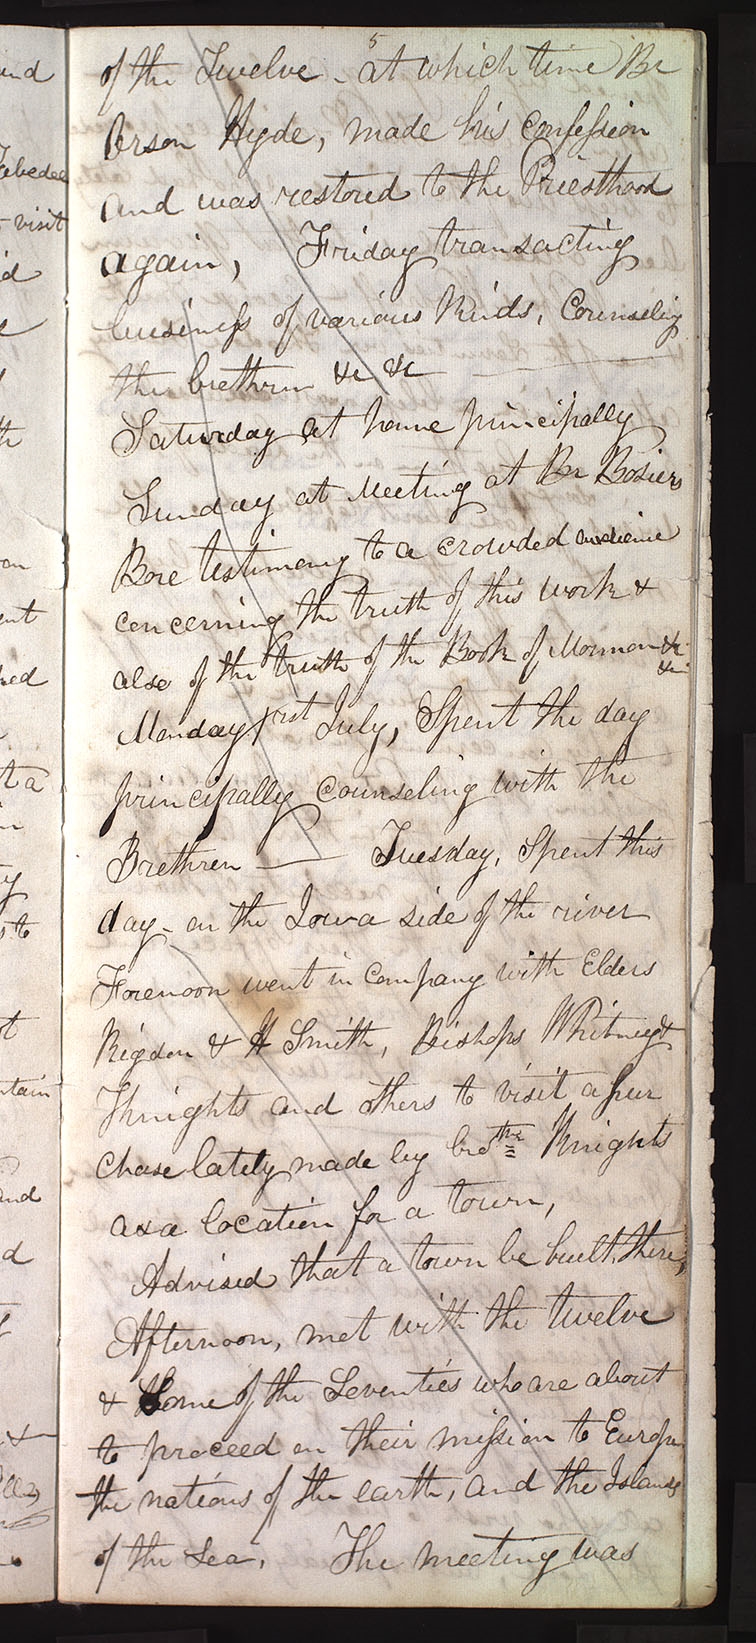 5
of the Twelve - at which time Br
Orson Hyde, made his confession
and was restored to the Priesthood
again, Friday transacting
business of various kinds, Counseling
the brethren &c &c
Saturday at home principally
Sunday at Meeting at Br Bosiers
Bore testimony to a crowded audience
concerning the truth of this work &
also of the truth of the Book of Mormon &c
&c
Monday first July, Spent the day
principally counseling with the
Brethren — Tuesday, Spent this
day - on the Iowa side of the river
Forenoon went in company with Elders
Rigdon & H Smith, Bishops Whitney &
Knights and others to visit a pur
chase lately made by bro the Knights
as a location for a town,
Advised that a town be built there,
Afternoon, met with the twelve
& Some of the Seventies who are about
to proceed on their mission to Europe
the nations of the earth, and the Islands
of the sea, The meeting was
nd
Zebedee
visit
d
th
on
ent
hed
t a
y
s to
ot
ntain
and
d